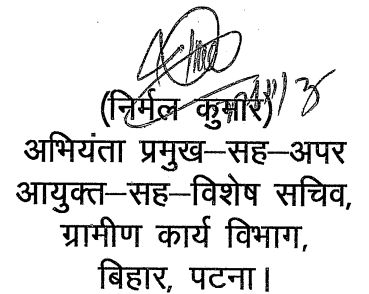 (निर्मल कुमार)
अभियंता प्रमुख–सह–अपर
आयुक्त–सह–विशेष सचिव,
ग्रामीण कार्य विभाग,
बिहार, पटना।